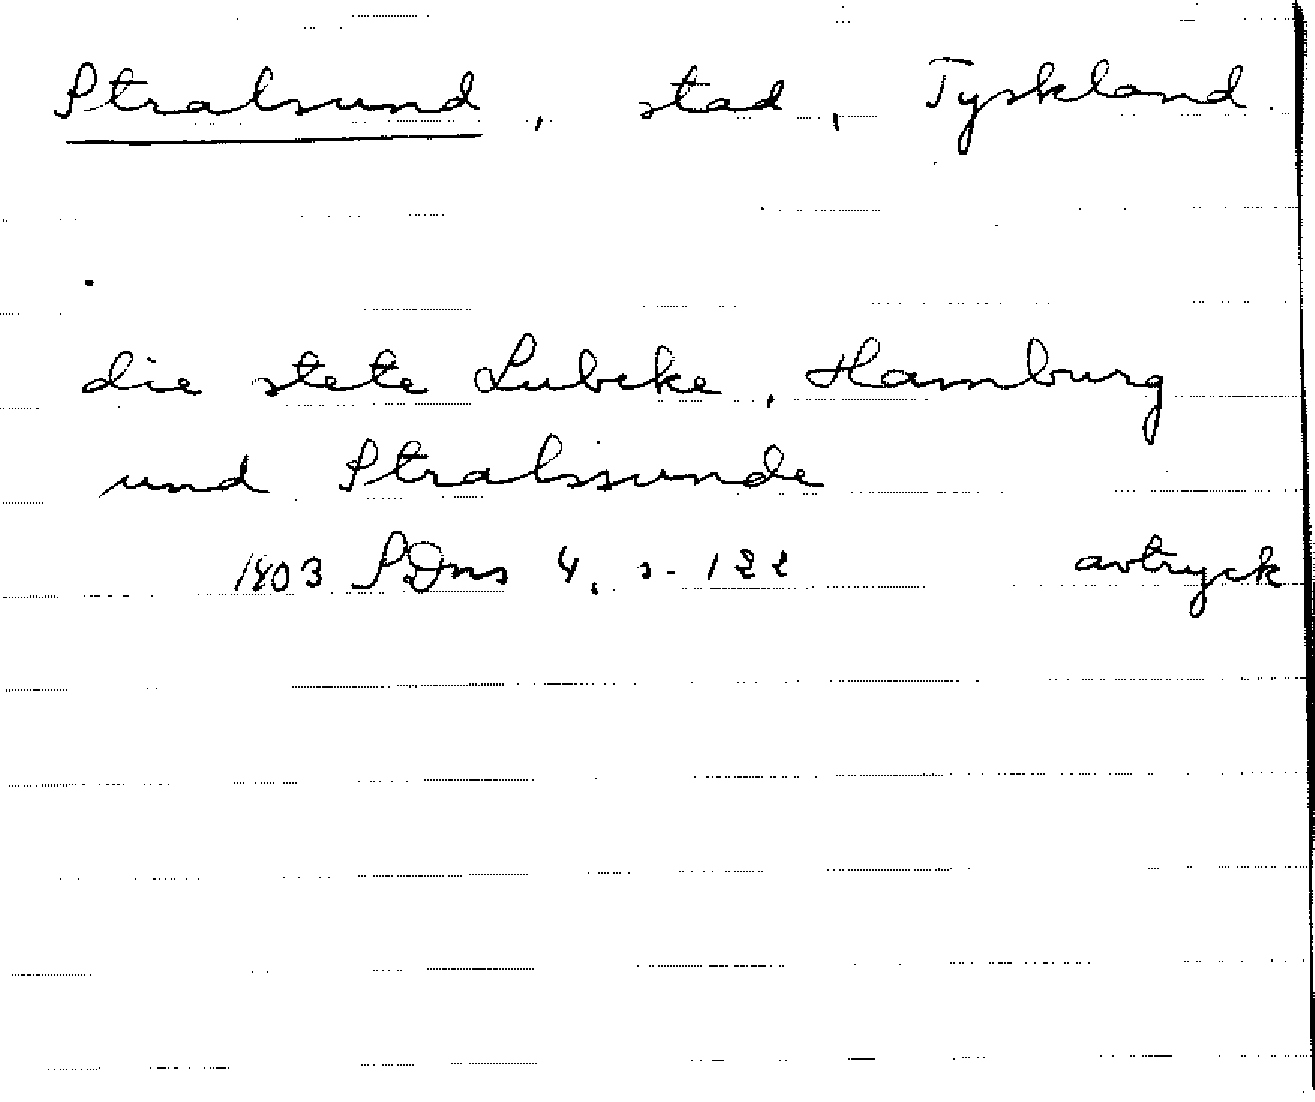 Stralsund, stad, Tyskland.
die stete Lubeke, Hamburg
und Stralssunde
1403 SDns 4, s. 122 avtryck